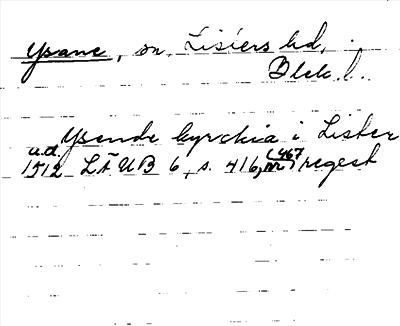 Ysane, sn. Listers hd,
Blek. l.
Ysende kyrckia i Lister
u.d.
1512 LÄUB 6, s. 416, (nr 467) regest